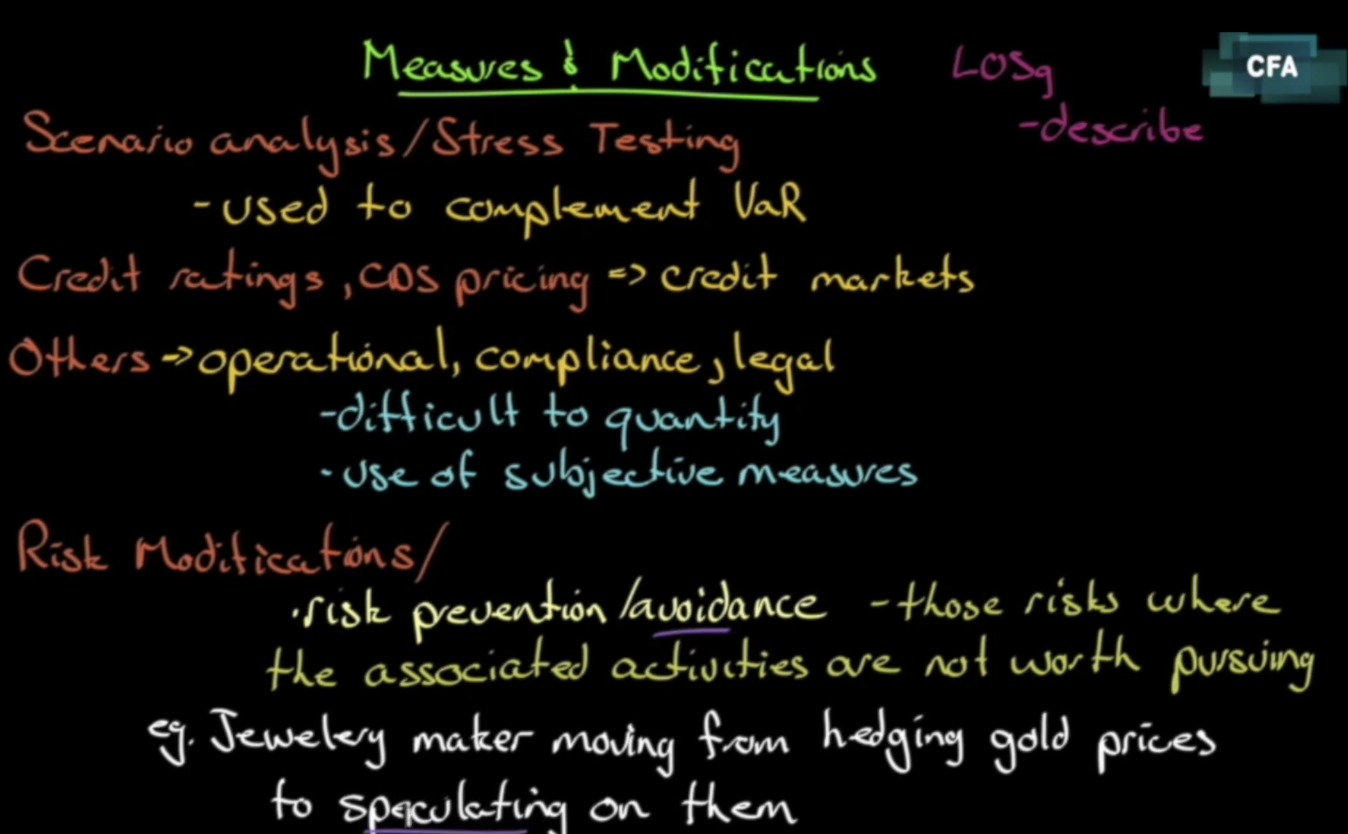 Measures & Modifications
LOSg
-describe
CFA
Scenario analysis/Stress Testing
-used to complement VaR
Credit ratings, CDS pricing => credit markets
Others -> operational, compliance, legal
-difficult to quantify
-use of subjective measures
Risk Modifications/
·risk prevention/avoidance -those risks where
the associated activities are not worth pursuing
eg. Jewelery maker moving from hedging gold prices
to speculating on them